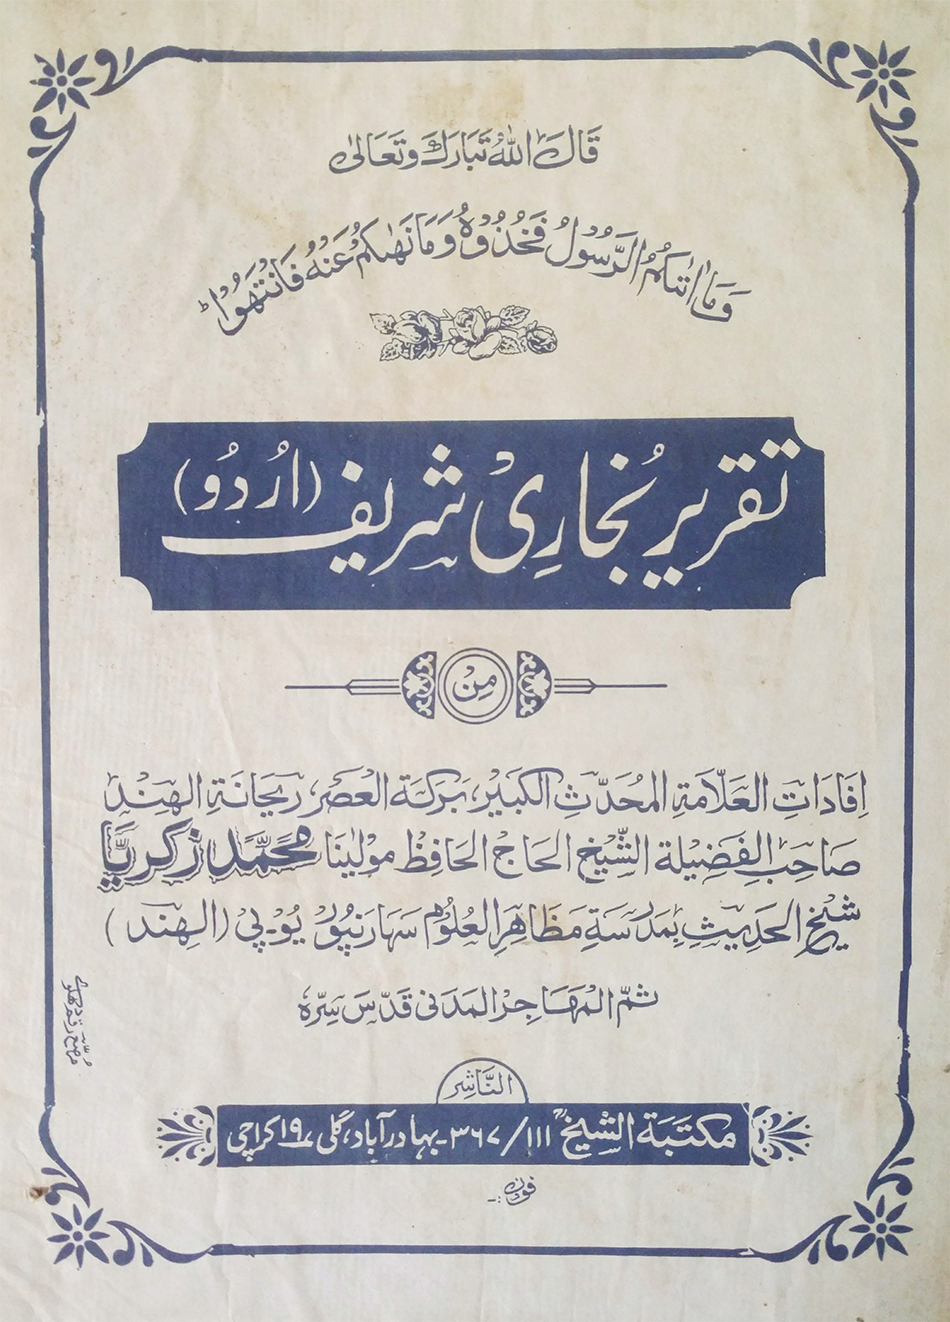 قَالَ اللّٰهُ تَبَارَكَ وَتَعَالٰى
وَمَا اٰتٰىكُمُ الرَّسُوْلُ فَخُذُوْهُ وَمَا نَهٰىكُمْ عَنْهُ فَانْتَهُوْا ط
تقریر بُخاری شریف (اُردُو)
مِنْ
اِفَادَاتِ العَلَّامَةِ المُحَدِّثِ الكَبِيْرِ، بَرَكَةِ العَصْرِ، رَيحَانَةِ الهِنْدِ
صَاحِبِ الفَضِيْلَة الشَّيْخ الحَاجّ الحَافِظْ مولٰينَا مُحَمَّد زَكَرِيَّا
شَيْخ الحَدِيْثِ بِمَدْرَسَةِ مَظَاهِرِ العُلُوْم سَهَارَنْپُوْر يُوْ-پِي (الهِنْد)
ثمّ المُهَاجِر المَدَنى قَدَّسَ سِرَّهٗ
النَّاشِر
مكتبة الشيخ ۳۶۷/۱۱۱- بہادر آباد، گلی ۱۹ کراچی
فون :-